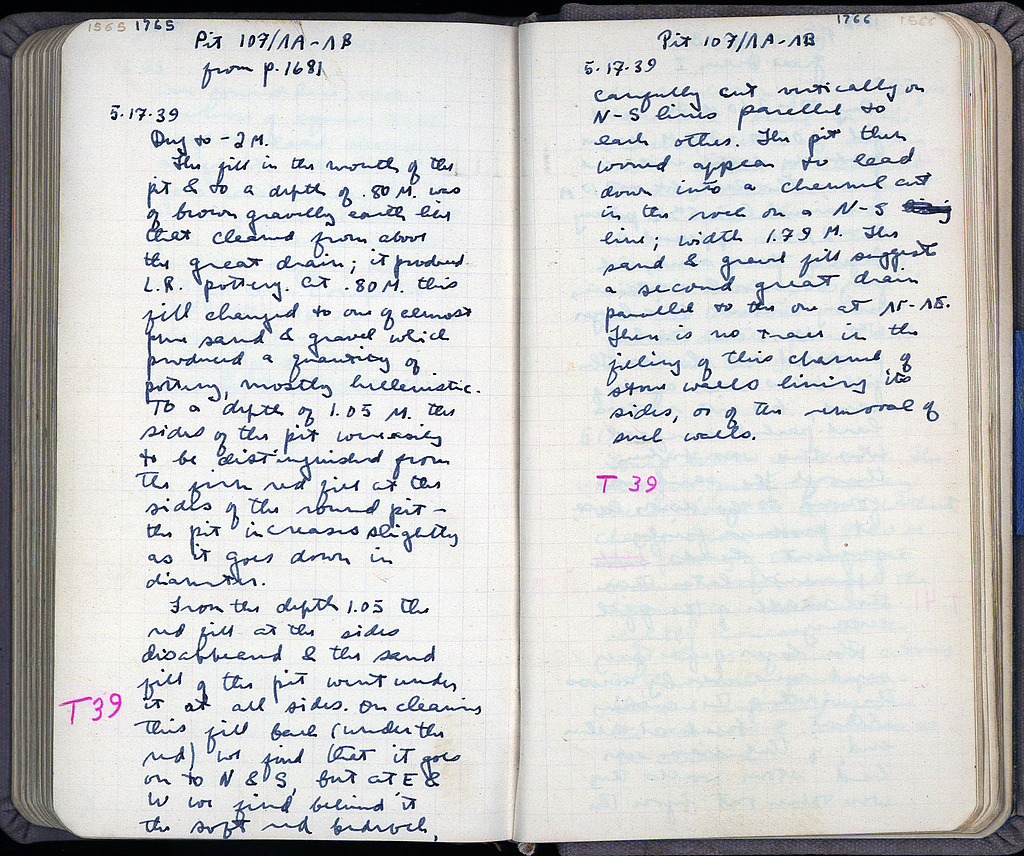 1565 1765
Pit 107/ΛΑ-ΛΒ
from p. 1681
5.17.39
Dug to -2 M.
The fill in the mouth of the
pit & to a depth of .80 M. was
of brown gravelly earth like
that cleared from above
the great drain; it produced
L.R. pottery. At .80 M. this
fill changed to one of almost
pure sand & gravel which
produced a quantity of
pottery, mostly hellenistic.
To a depth of 1.05 M. the
sides of the pit were easily
to be distinguished from
the firm red fill at the
sides of the round pit –
the pit increases slightly
as it goes down in
diameter.
From the depth 1.05 the
red fill at the sides
disappeared & the sand
fill of the pit went under
it at all sides. On cleaning
this fill back (under the
red) we find that it goes
on to N & S, but at E &
W we find behind it
the soft red bedrock,
T 39
1766 1566
Pit 107/ΛΑ-ΛΒ
5.17.39
carefully cut vertically on
N-S lines parallel to
each other. The pit then
would appear to lead
down into a channel cut
in the rock on a N-S
line; width 1.79 M. The
sand & gravel fill suggests
a second great drain
parallel to the one at ΛΓ-ΛΕ.
There is no trace in the
filling of this channel of
stone walls lining its
sides, or of the removal of
such walls.
T 39